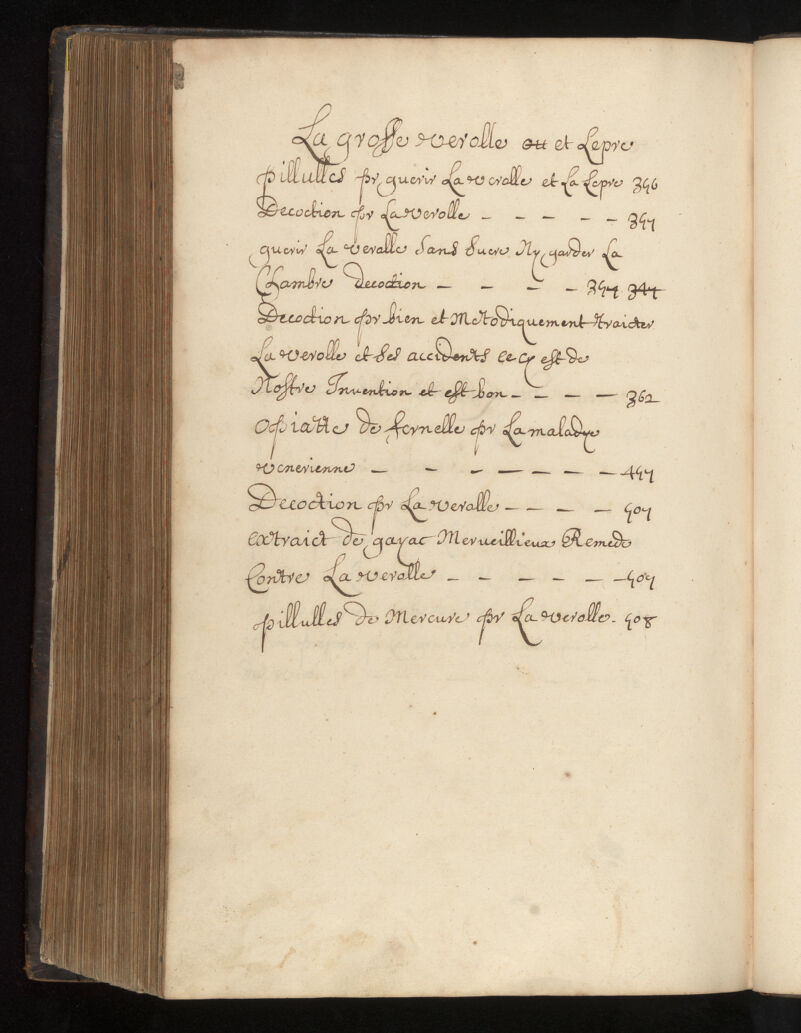 La grosse verolle ou et Lepre
pillulles pr guerir La verolle et La Lepre 356
Decoction pr La verolle - - - - - 357
guerir La verolle Sans Suere Ny garder La
Chambre decoction - - - - 357 347
Decoction pr bien et Metodiquement traicter
La verolle et Ses accidents cecy est de
Nostre Invention et est bon - - - - 362
Opiatte de fernelle pr La maladye
venerienne - - - - - - - - 457
Decoction pr La verolle - - - - 507
extraict de gayac Merueillieux Remede
Contre La verolle - - - - - - 507
pillulles de Mercure pr La verolle - 508